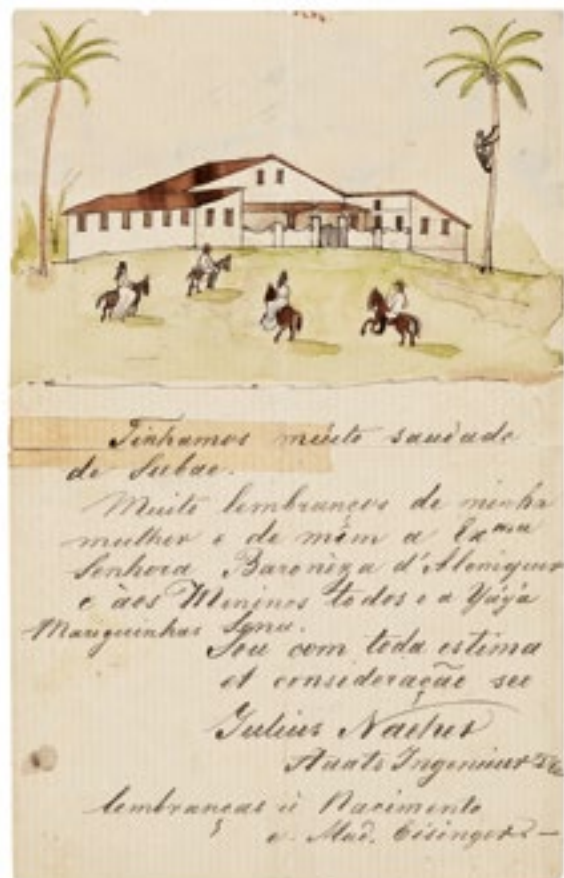 Tinhamos muito saudade
de Subae.
Muito lembranços de minha
mulher e de mim a Exma
Senhora Baroneza d'
e àos Meninos todos e a Yáyá
Mariguinhas
Sou com toda estima
et consideração seu
Julius Naeher
Ingenieur
lembrancas à Nacimento
e. Mad. Eisinger —